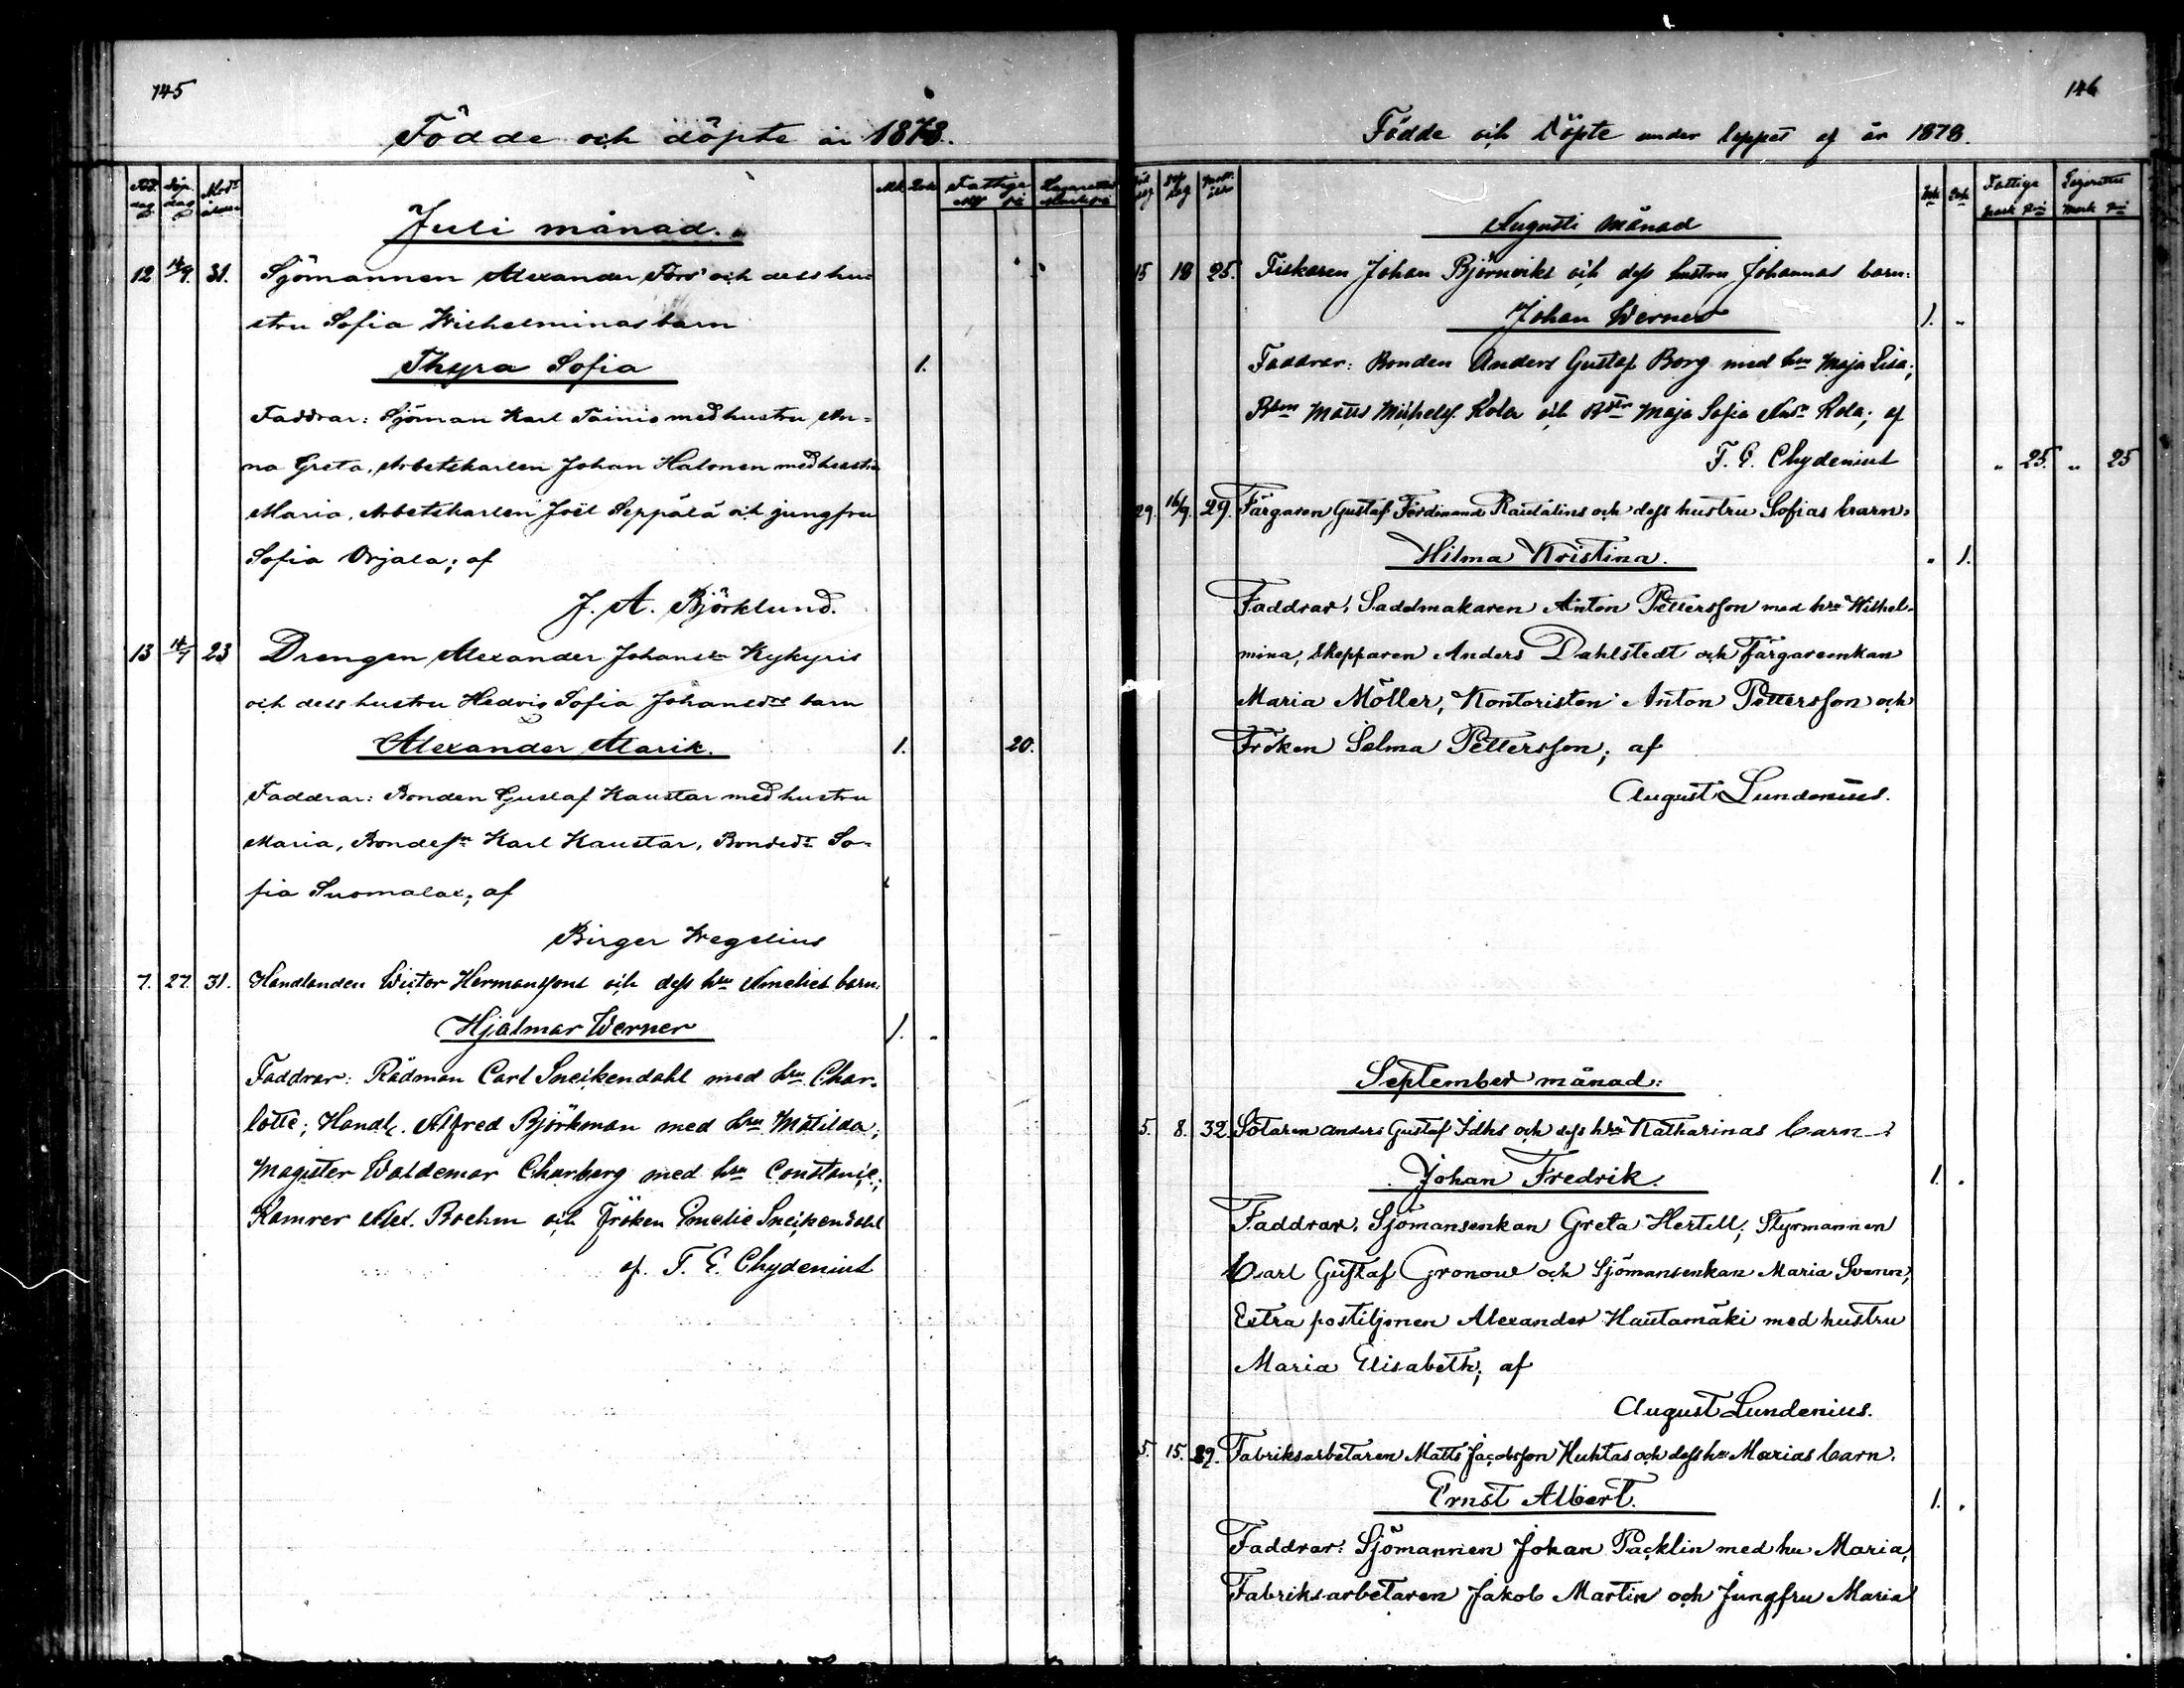 145
Födde och döpte år 1878.
Juli månad.
12 14/7. 31. Sjömannen Alexander Fors' och dess hu-
stru Sofia Wilhelminas barn
Thyra Sofia 1.
Faddrar: Sjöman Karl Tainio med hustru An-
na Greta, Arbetskarlen Johan Halonen med hustru
Maria, Arbetskarlen Joël Seppälä och jungfru
Sofia Orjala; af
J. A. Björklund.
13 14/7 23 Drengen Alexander Johanss. Kykyris
och dess hustru Hedvig Sofia Johansdrs barn
Alexander Alarik. 1. 20.
Faddrar: Bonden Gustaf Kaustar med hustru
Maria, Bondesn Karl Kaustar, Bondedr So-
fia Suomalax; af
Birger Wegelius
7. 27. 31. Handlanden Wictor Hermanssons och dess hru Amelies barn:
Hjalmar Werner 1. "
Faddrar: Rådman Carl Sneckendahl med hru Char-
lotte; Handl. Alfred Björkman med hru Matilda;
Magister Waldemar Churberg med hru Constance;
Kamrer Alex. Boehm och Fröken Emelie Sneckendahl
af. F. E. Chydenius
146
Födde och Döpte under loppet af år 1878.
Fattige
Mark Pni Mark Pni
Augusti månad
15 18 25. Fiskaren Johan Björnviks och dess hustru Johannas barn:
Johan Werner 1. "
Faddrar: Bonden Anders Gustaf Borg med hru Maja Lisa;
Bdsn Matts Michelss. Kola och Bdr Maja Sofia Kola; af
F. E. Chydenius " 25. " 25
29. 16/9. 29. Färgaren Gustaf Ferdinand Rautalins och dess hustru Sofias barn.
Hilma Kristina. " 1.
Faddrar, Sadelmakaren Anton Pettersson med hru Wilhel-
mina, Skepparen Anders Dahlstedt och Färgareenkan
Maria Möller, Kontoristen Anton Pettersson och
Fröken Selma Pettersson; af
August Lundenius.
September månad:
5. 8. 32. Sotaren Anders Gustaf och dess hru Katharinas barn:
Johan Fredrik. 1. "
Faddrar, Sjömansenkan Greta Hertell; Styrmannen
Carl Gustaf Gronow och Sjömansenkan Maria Svenn;
Extra postiljonen Alexander Hautamäki med hustru
Maria Elisabeth; af
August Lundenius.
5. 15. 39. Fabriksarbetaren Matts Jacobsson Huhtas och dess hu Marias barn.
Ernst Albert. 1. "
Faddrar: Sjömannen Johan Packlin med hu Maria,
Fabriksarbetaren Jakob Martin och Jungfru Maria